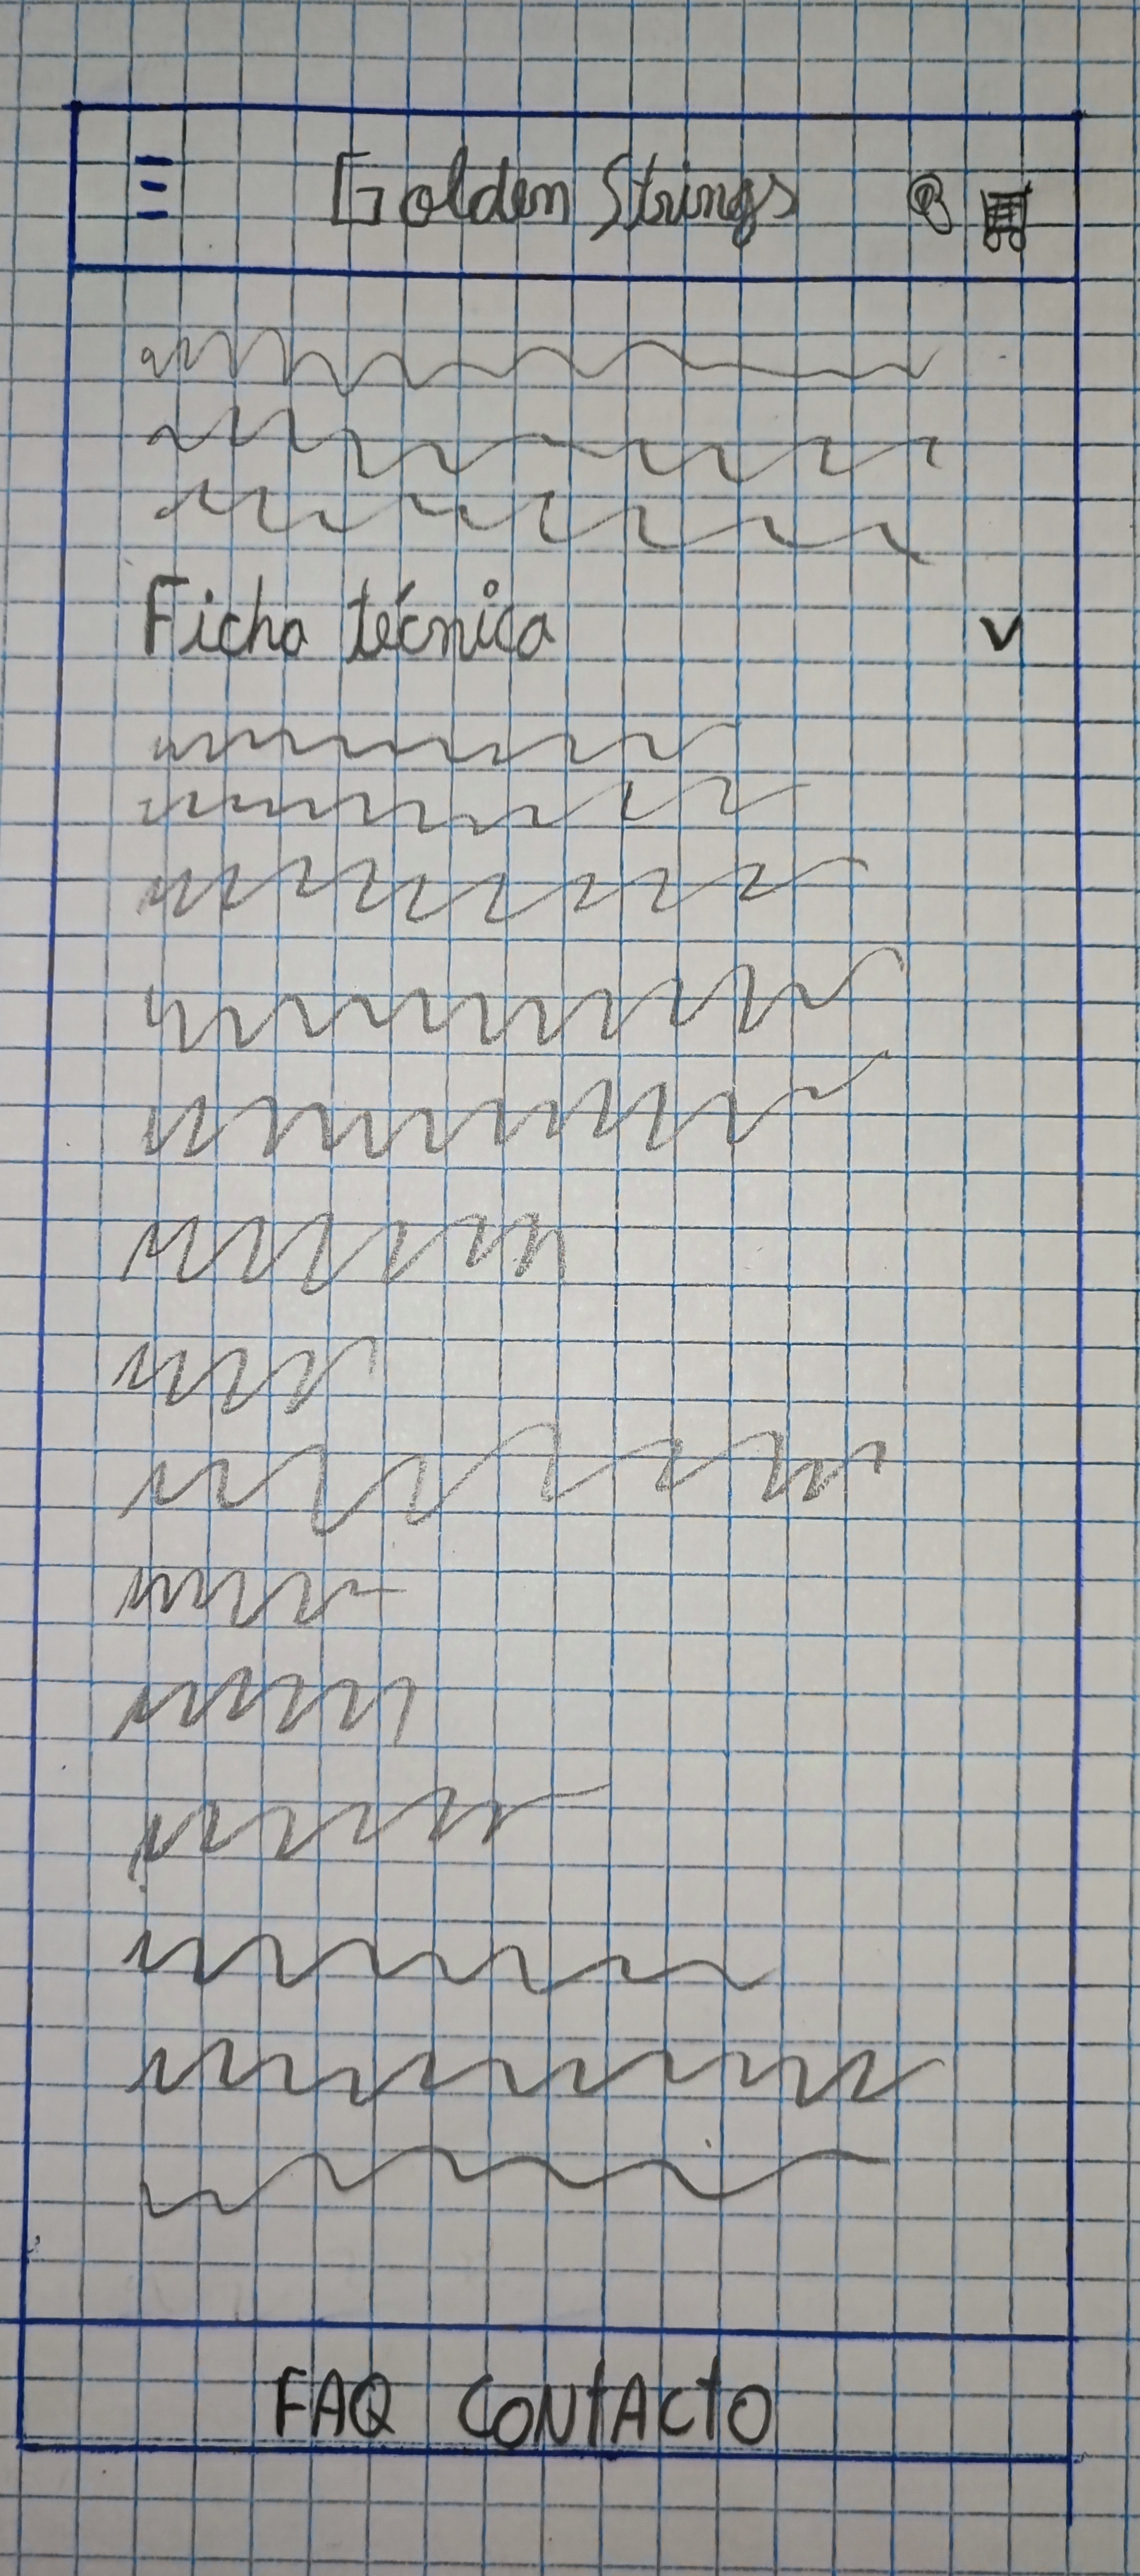 Golden Strings
Ficha técnica
FAQ CONTACTO